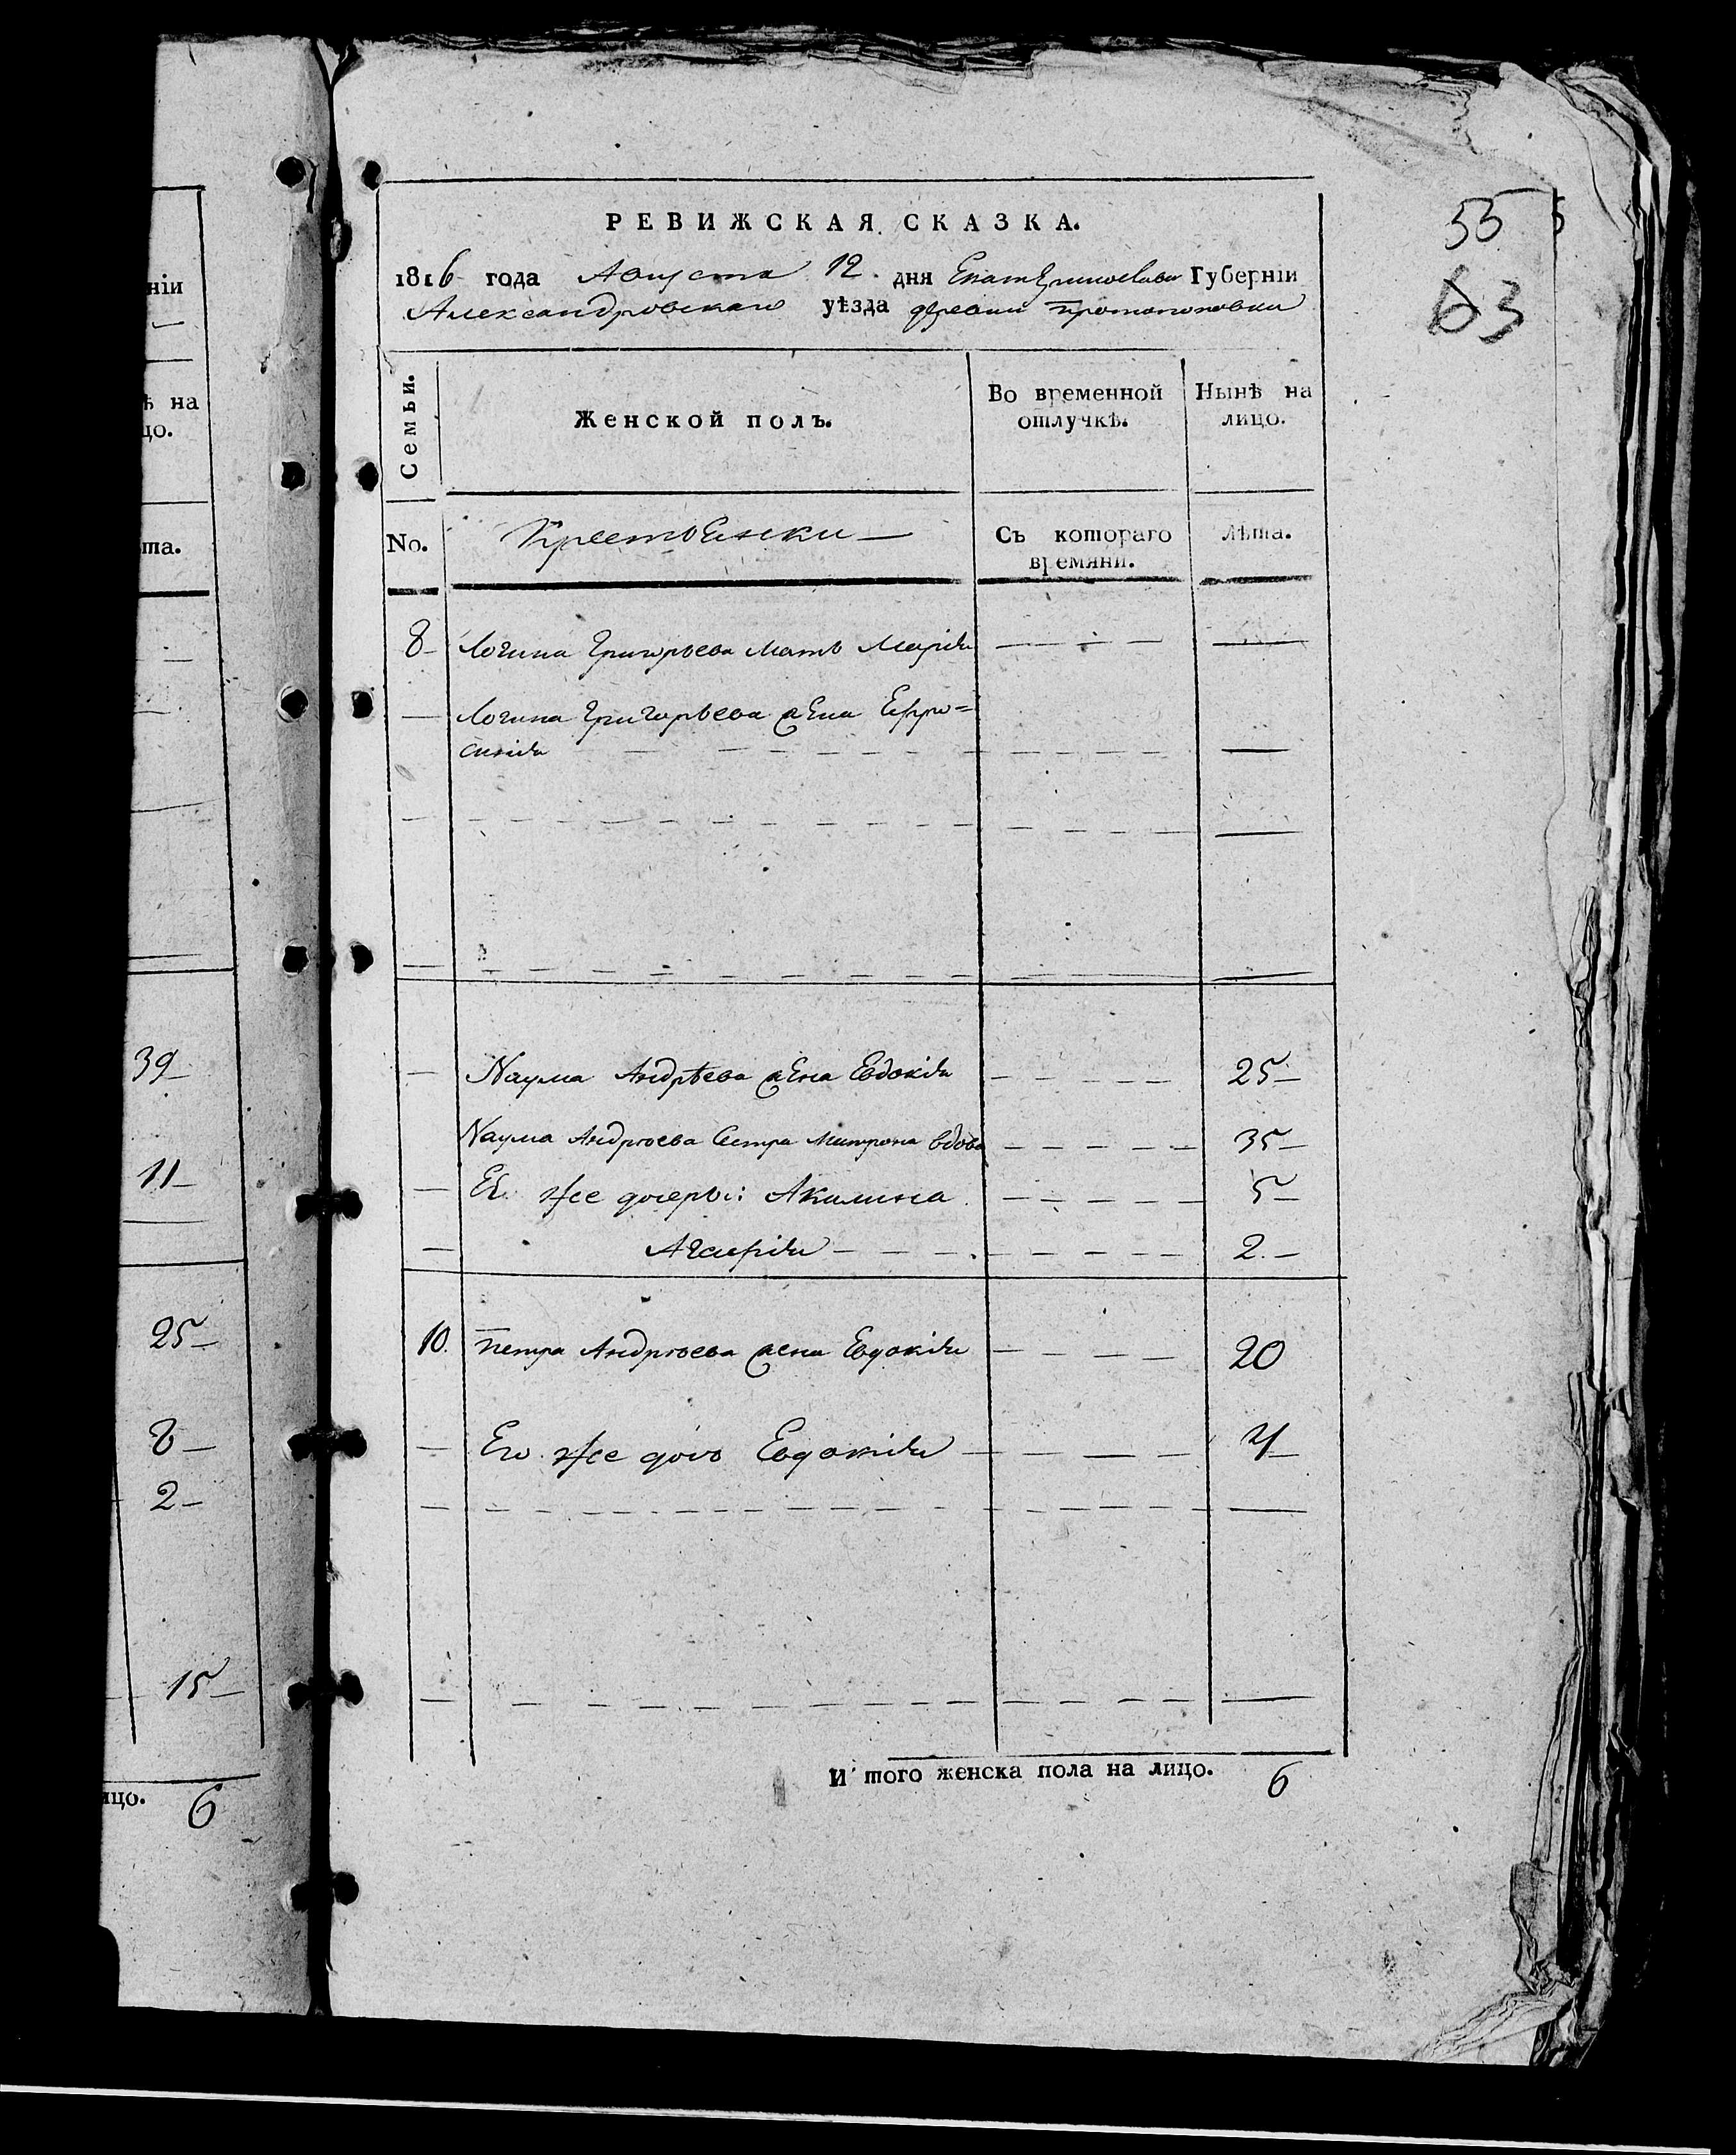 55
63
РЕВИЖСКАЯ СКАЗКА.
1816 года Августа 12. дня Екатеринославск Губерніи
Александровскаго уѣзда деревни Протопоповки
Семьи.
Женской полъ.
Во временной отлучкѣ.
Нынѣ на лицо.
No.
Крестьянки
Съ котораго времяни.
Лѣта.
8 Логина Григорьева мать Марія
Логина Григорьева жена Ефро=
синія
Наума Андрѣева жена Евдокія 25
Наума Андрѣева сестра Митрона вдова 35
Ея же дочери: Акилина 5
Агафія 2.
10. Петра Андрѣева жена Евдокія 20
Его же дочь Евдокія 4
И того женска пола на лицо. 6
ніи
ѣ на
цо.
та.
39
11
25
8
2
15
ицо. 6